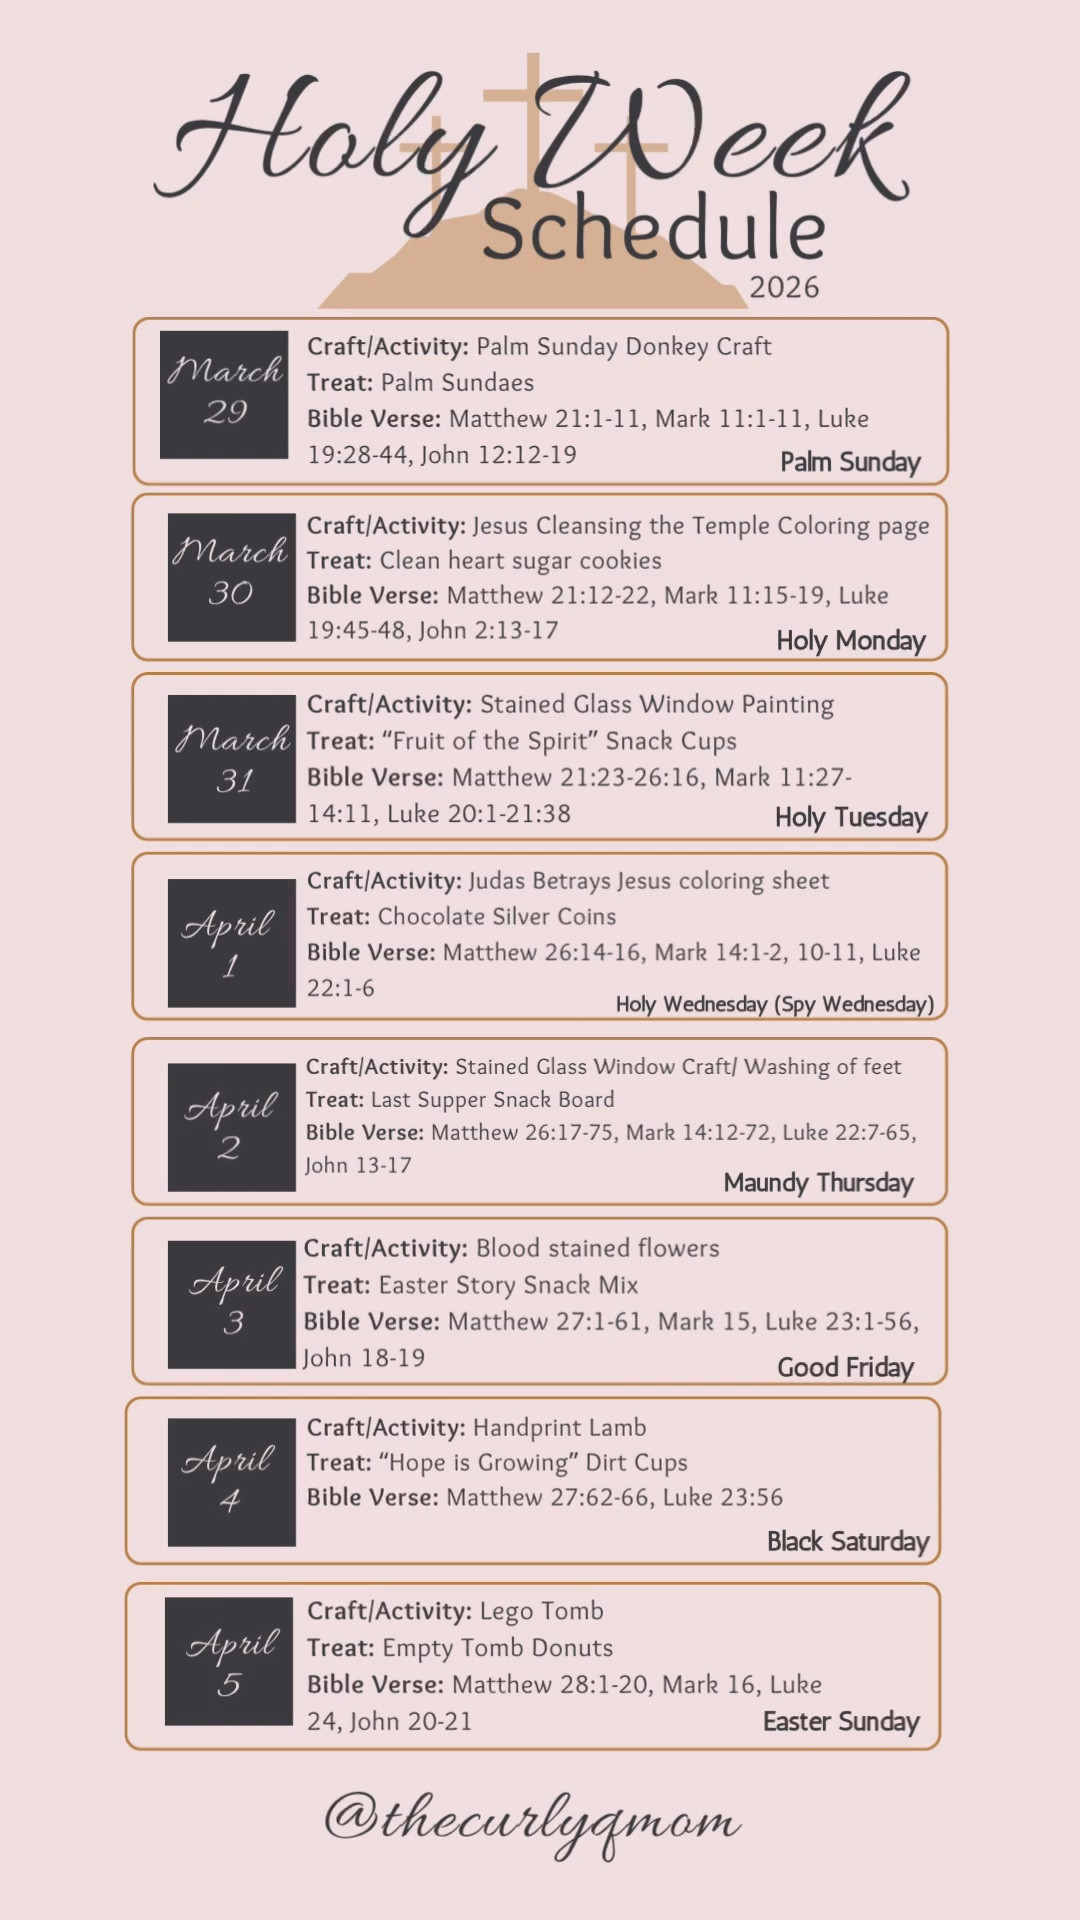 Holy Week
Schedule
2026
March
29
Craft/Activity: Palm Sunday Donkey Craft
Treat: Palm Sundaes
Bible Verse: Matthew 21:1-11, Mark 11:1-11, Luke
19:28-44, John 12:12-19
Palm Sunday
March
30
Craft/Activity: Jesus Cleansing the Temple Coloring page
Treat: Clean heart sugar cookies
Bible Verse: Matthew 21:12-22, Mark 11:15-19, Luke
19:45-48, John 2:13-17
Holy Monday
March
31
Craft/Activity: Stained Glass Window Painting
Treat: “Fruit of the Spirit” Snack Cups
Bible Verse: Matthew 21:23-26:16, Mark 11:27-
14:11, Luke 20:1-21:38
Holy Tuesday
April
1
Craft/Activity: Judas Betrays Jesus coloring sheet
Treat: Chocolate Silver Coins
Bible Verse: Matthew 26:14-16, Mark 14:1-2, 10-11, Luke
22:1-6
Holy Wednesday (Spy Wednesday)
April
2
Craft/Activity: Stained Glass Window Craft/ Washing of feet
Treat: Last Supper Snack Board
Bible Verse: Matthew 26:17-75, Mark 14:12-72, Luke 22:7-65,
John 13-17
Maundy Thursday
April
3
Craft/Activity: Blood stained flowers
Treat: Easter Story Snack Mix
Bible Verse: Matthew 27:1-61, Mark 15, Luke 23:1-56,
John 18-19
Good Friday
April
4
Craft/Activity: Handprint Lamb
Treat: “Hope is Growing” Dirt Cups
Bible Verse: Matthew 27:62-66, Luke 23:56
Black Saturday
April
5
Craft/Activity: Lego Tomb
Treat: Empty Tomb Donuts
Bible Verse: Matthew 28:1-20, Mark 16, Luke
24, John 20-21
Easter Sunday
@thecurlyqmom